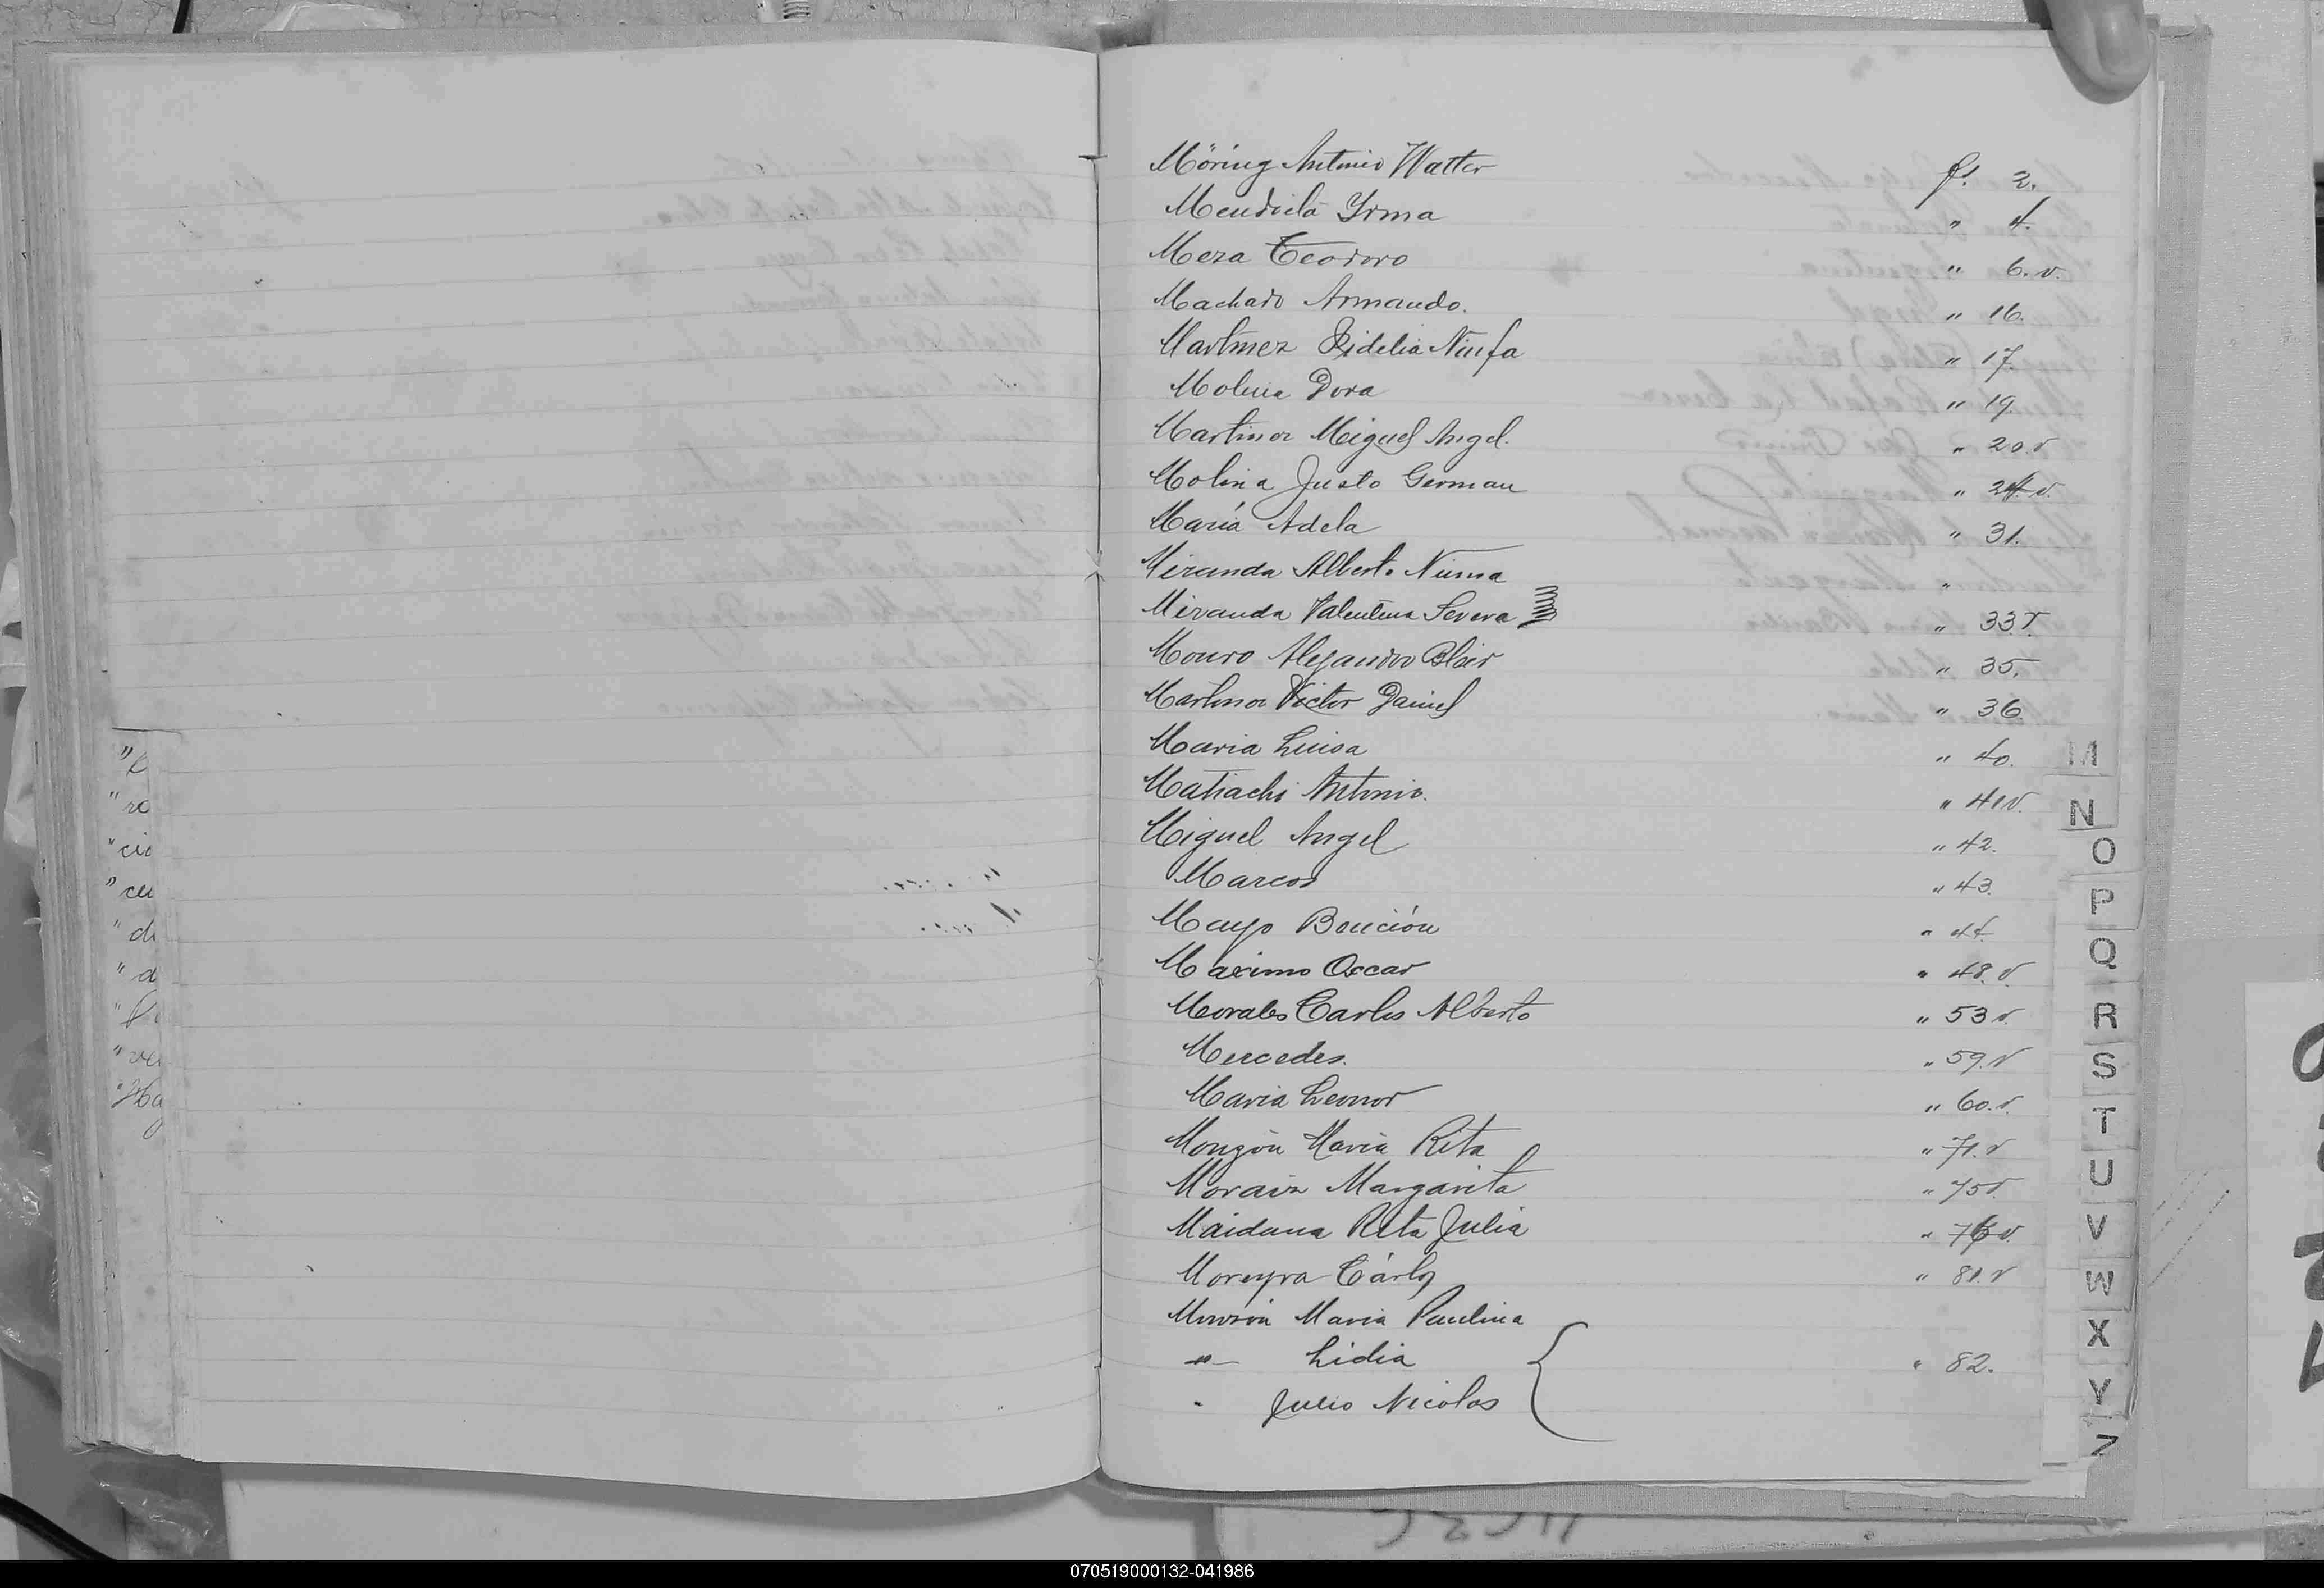 Möring Antonio Walter fs. 2.
Mendiela Yrma " 4.
Meza Teodoro " 6. v.
Machado Armando. " 16.
Martinez Fidelia Ninfa " 17.
Molina Dora " 19.
Martinez Miguel Angel. " 20 v
Molina Justo German " 24 v.
María Adela " 31.
Miranda Alberto Numa "
Miranda Valentina Severa " 33 v.
Mouro Alejandro Blair " 35.
Martinez Victor Daniel " 36.
Maria Luisa " 40.
Matiachi Antonio. " 41 v.
Miguel Angel " 42.
Marcos " 43.
Mayo Bención " 44
Maximo Oscar " 48. v.
Morales Carlos Alberto " 53 v.
Mercedes. " 59. v
Maria Leonor " 60. v.
Monzón Maria Rita " 71. v
Moraiz Margarita " 75 v.
Maidana Rita Julia " 76 v.
Moreyra Cárlos " 81. v
Monzón Maria Paulina
" Lidia " 82.
" Julio Nicolas
M
N
O
P
Q
R
S
T
U
V
W
X
Y
Z
070519000132-041986